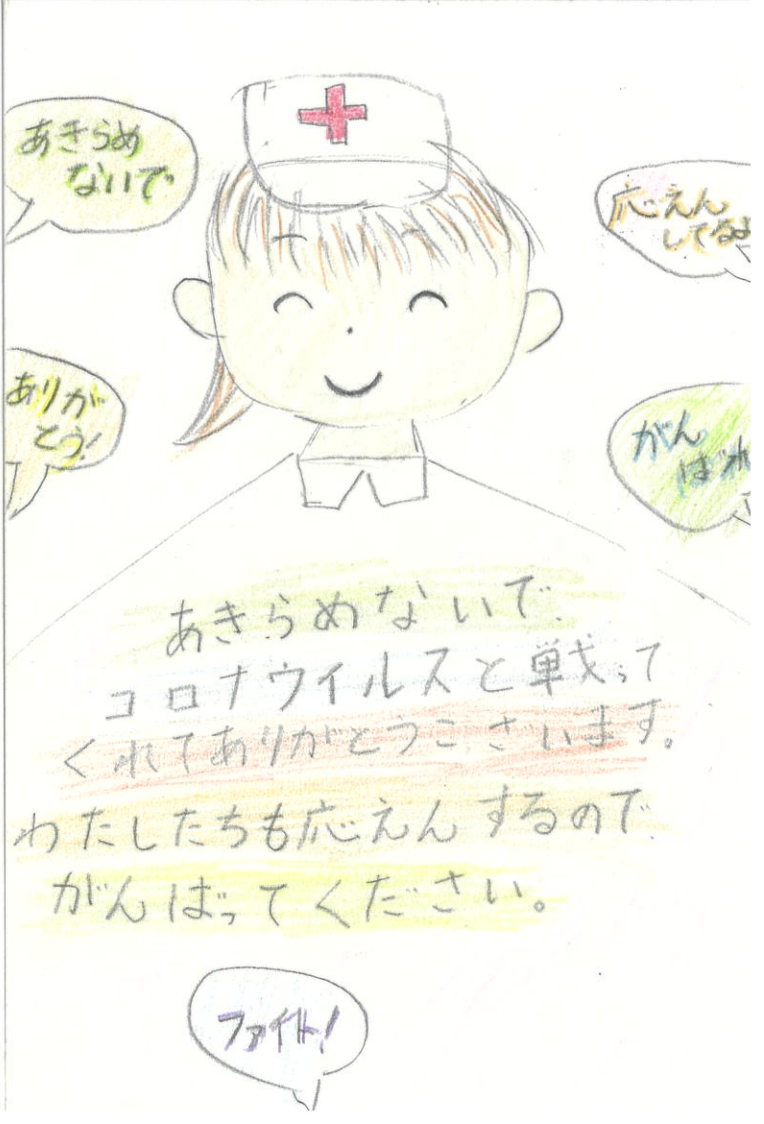 あきらめ
ないで
応えん
してるよ
ありが
とう!
がん
ばれ
あきらめないで
コロナウイルスと戦って
くれてありがとうございます。
わたしたちも応えんするので
がんばってください。
ファイト!